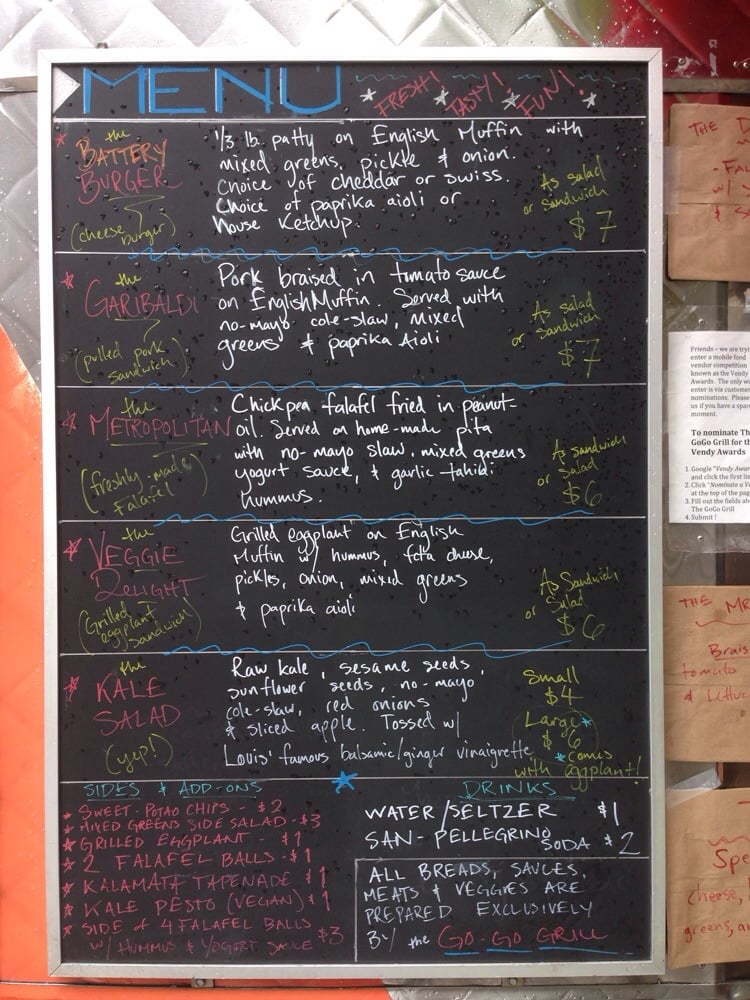 MENU
FRESH! TASTY! FUN!
the
BATTERY
BURGER
(cheese burger)
1/3 lb. patty on English Muffin with
mixed greens, pickle & onion.
Choice of cheddar or swiss.
Choice of paprika aioli or
house Ketchup.
As salad
or sandwich
$7
the
GARIBALDI
(pulled pork
sandwich)
Pork braised in tomato sauce
on English Muffin. Served with
no-mayo cole-slaw, mixed
greens & paprika Aioli
As salad
or Sandwich
$7
the
METROPOLITAN
(freshly-made
falafel)
Chickpea falafel fried in peanut-
oil. Served on home-made pita
with no-mayo slaw, mixed greens
yogurt sauce, & garlic tahidi
hummus.
As sandwich
or Salad
$6
the
VEGGIE
DELIGHT
(Grilled
eggplant
Sandwich)
Grilled eggplant on English
Muffin w/ hummus, feta cheese,
pickles, onion, mixed greens
& paprika aioli
As Sandwich
or Salad
$6
the
KALE
SALAD
(yep!)
Raw kale, sesame seeds,
sunflower seeds, no-mayo
cole-slaw, red onions
& sliced apple. Tossed w/
Louis' famous balsamic/ginger vinaigrette
Small
$4
Large*
$6
*comes
with eggplant!
SIDES & ADD-ONS
SWEET-POTAO CHIPS - $2
MIXED GREENS SIDE SALAD - $3
GRILLED EGGPLANT - $1
2 FALAFEL BALLS - $1
KALAMATA TAPENADE $1
KALE PESTO (VEGAN) $1
SIDE of 4 FALAFEL BALLS
W/ HUMMUS & YOGURT SAUCE $3
DRINKS
WATER/SELTZER $1
SAN-PELLEGRINO SODA $2
ALL BREADS, SAUCES,
MEATS & VEGGIES ARE
PREPARED EXCLUSIVELY
BY the GO-GO GRILL
THE
Friends – we are
enter a mobile food
vendor competition
known as the Vendy
Awards. The only
enter is via
nominations. Please
us if you have a
moment.
To nominate
GoGo Grill for
Vendy Awards
1. Google "Vendy
and click the first
2. Click "Nominate a
at the top of the
3. Fill out the fields
The GoGo Grill
4. Submit !
THE
tomato
&
cheese,
greens,